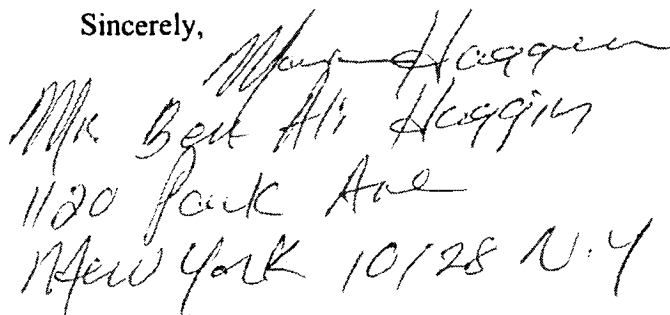 Sincerely,
Haggin
Mr. Ben Ali Haggin
1120 Park Ave
New York 10128 N.Y